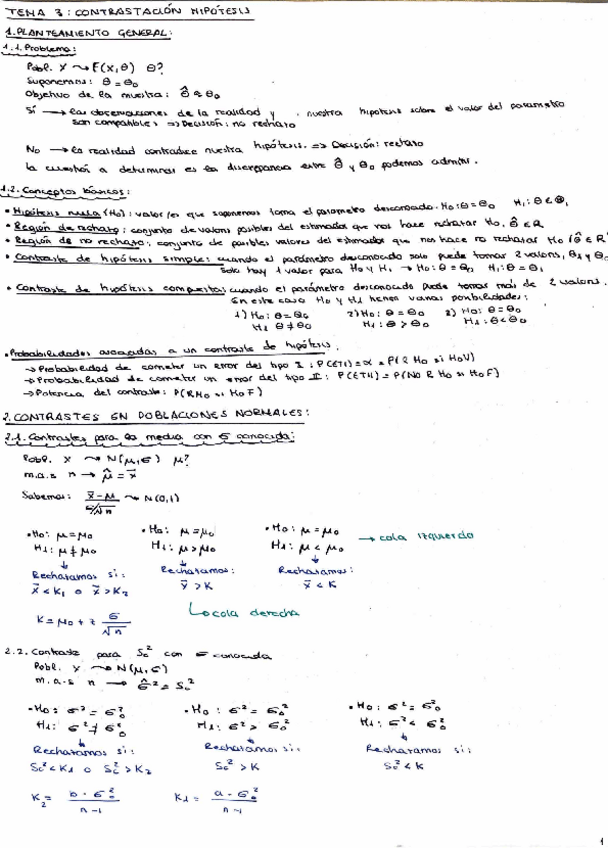 TEMA 3: CONTRASTACIÓN HIPÓTESIS
1. PLANTEAMIENTO GENERAL:
1.1. Problema:
Pobl. X ⟿ F(X,θ) θ?
Suponemos: θ = θ₀
Objetivo de la muestra: θ̂ ≈ θ₀
Sí → las observaciones de la realidad y nuestra hipótesis sobre el valor del parámetro
son compatibles ⇒ Decisión: no rechazo
No → la realidad contradice nuestra hipótesis. ⇒ Decisión: rechazo
La cuestión a determinar es la discrepancia entre θ̂ y θ₀ podemos admitir.
1.2. Conceptos básicos:
• Hipótesis nula (H₀): valor/es que suponemos toma el parámetro desconocido. H₀: θ = θ₀ H₁: θ ∈ Θ₁
• Región de rechazo: conjunto de valores posibles del estimador que nos hace rechazar H₀, θ̂ ∈ R
• Región de no rechazo: conjunto de posibles valores del estimador que nos hace no rechazar H₀ (θ̂ ∈ R
• Contraste de hipótesis simple: cuando el parámetro desconocido solo puede tomar 2 valores, θ₁ y θ₀
Solo hay 1 valor para H₀ y H₁ → H₀: θ = θ₀, H₁: θ = θ₁
• Contraste de hipótesis compuestas: cuando el parámetro desconocido puede tomar más de 2 valores.
En este caso H₀ y H₁ tienen varias posibilidades:
1) H₀: θ = θ₀ 2) H₀: θ = θ₀ 3) H₀: θ = θ₀
H₁ θ ≠ θ₀ H₁: θ > θ₀ H₁: θ < θ₀
• Probabilidades asociadas a un contraste de hipótesis.
→ Probabilidad de cometer un error del tipo I: P(ETI) = α = P(R H₀ si H₀V)
→ Probabilidad de cometer un error del tipo II: P(ETII) = P(NO R H₀ si H₀ F)
→ Potencia del contraste: P(RH₀ si H₀ F)
2. CONTRASTES EN POBLACIONES NORMALES:
2.1. Contrastes para la media con σ conocida:
Pobl. X ⟿ N(μ,σ) μ?
m.a.s n → μ̂ = x̄
Sabemos: (x̄-μ)/(σ/√n) ⟿ N(0,1)
• H₀: μ = μ₀ • H₀: μ = μ₀ • H₀: μ = μ₀
H₁: μ ≠ μ₀ H₁: μ > μ₀ H₁: μ < μ₀ → cola izquierdo
Rechazamos si: Rechazamos: Rechazamos:
x̄ < K₁ o x̄ > K₂ x̄ > K x̄ < K
cola derecha
K = μ₀ + z σ/√n
2.2. Contraste para Sc² con σ conocida
Pobl. X ⟿ N(μ,σ)
m.a.s n → σ̂² = Sc²
• H₀: σ² = σ₀² • H₀: σ² = σ₀² • H₀: σ² = σ₀²
H₁: σ² ≠ σ₀² H₁: σ² > σ₀² H₁: σ² < σ₀²
Rechazamos si: Rechazamos si: Rechazamos si:
Sc² < K₁ o Sc² > K₂ Sc² > K Sc² < K
K₂ = b·σ₀²/n-1 K₁ = a·σ₀²/n-1
1